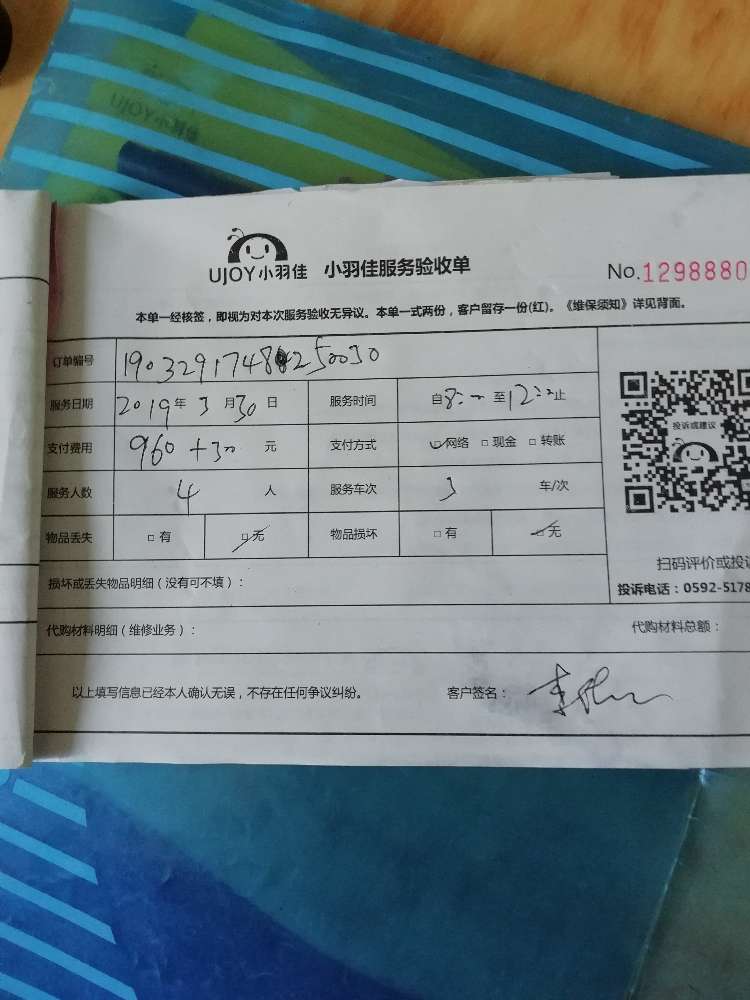 UJOY小羽佳
UJOY小羽佳 小羽佳服务验收单 No.1298880
本单一经核签，即视为对本次服务验收无异议。本单一式两份，客户留存一份(红)。《维保须知》详见背面。
订单编号
服务日期 2019年 3月30日 服务时间 自8:00至12:00止
支付费用 960+300 元 支付方式 ☑网络 □现金 □转账
服务人数 4 人 服务车次 3 车/次
物品丢失 □有 ☑无 物品损坏 □有 ☑无
投诉或建议
扫码评价或投诉
投诉电话：0592-5178
损坏或丢失物品明细（没有可不填）：
代购材料明细（维修业务）： 代购材料总额：
以上填写信息已经本人确认无误，不存在任何争议纠纷。 客户签名：